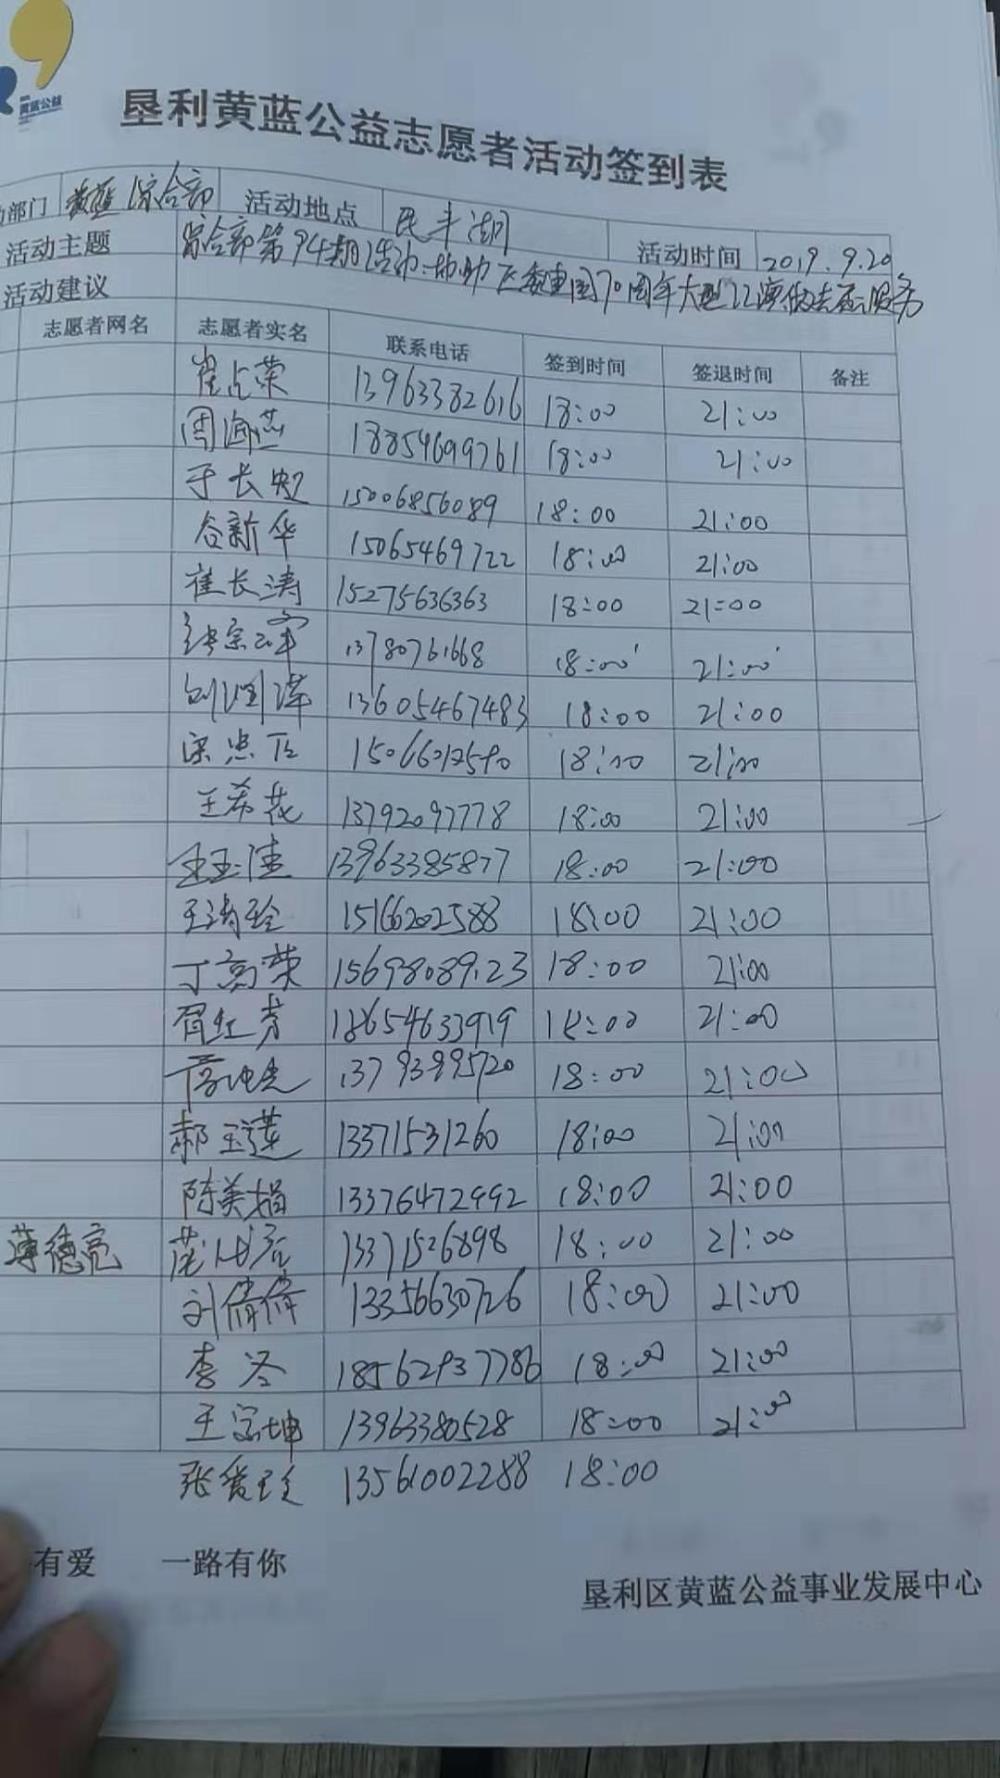 黄蓝公益
垦利黄蓝公益志愿者活动签到表
动部门 黄蓝综合部 活动地点 民丰湖 活动时间 2019.9.20
活动主题 综合部第94期活动:协助区委建国70周年大型汇演做志愿服务
活动建议
志愿者网名 志愿者实名 联系电话 签到时间 签退时间 备注
崔占荣 13963382616 18:00 21:00
周海燕 18854699761 18:00 21:00
于长 15006856089 18:00 21:00
谷新华 15065469722 18:00 21:00
崔长涛 15275636363 18:00 21:00
张宗军 13780761668 18:00 21:00
刘润泽 13605467483 18:00 21:00
宋 18:00 21:00
王希花 13792097778 18:00 21:00
王玉佳 13963385877 18:00 21:00
王海玲 15166202588 18:00 21:00
丁高荣 15698089123 18:00 21:00
胥红芳 18654633919 18:00 21:00
13793995720 18:00 21:00
郝玉莲 13371531260 18:00 21:00
陈美娟 13376472992 18:00 21:00
薄德亮 13371526898 18:00 21:00
刘倩倩 13356630726 18:00 21:00
李冬 18562937786 18:00 21:00
王宗坤 13963380528 18:00 21:00
张爱玲 13561002288 18:00
有爱 一路有你
垦利区黄蓝公益事业发展中心